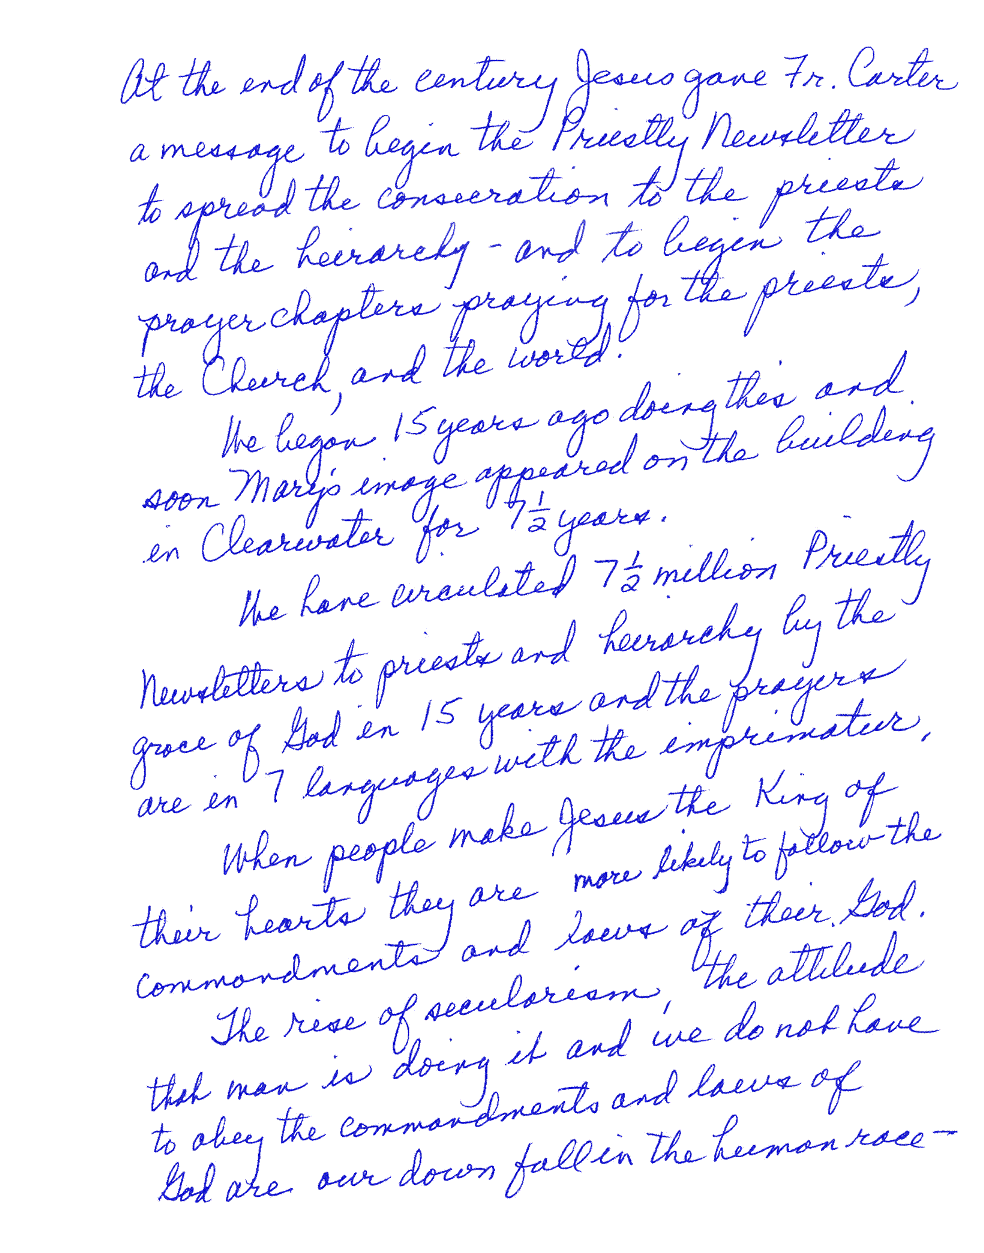 At the end of the century Jesus gave Fr. Carter
a message to begin the Priestly Newsletter
to spread the consecration to the priests
and the heirarchy - and to begin the
prayer chapters praying for the priests,
the Church, and the world.
We began 15 years ago doing this and
soon Mary's image appeared on the building
in Clearwater for 7 1/2 years.
We have circulated 7 1/2 million Priestly
Newsletters to priests and heirarchy by the
grace of God in 15 years and the prayers
are in 7 languages with the imprimatur.
When people make Jesus the King of
their hearts they are more likely to follow the
commandments and laws of their God.
The rise of secularism, the attitude
that man is doing it and we do not have
to obey the commandments and laws of
God are our down fall in the human race-